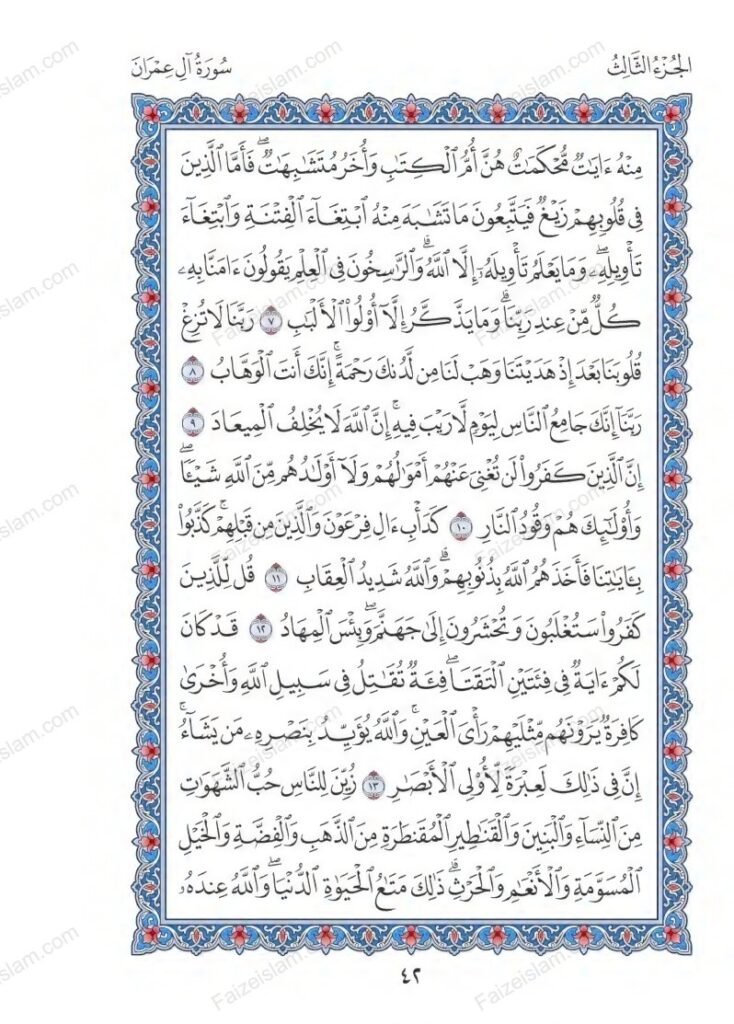 الجُزْءُ الثَّالِثُ
سُورَةُ آلِ عِمْرَانَ
مِنْهُ ءَايَٰتٌ مُّحْكَمَٰتٌ هُنَّ أُمُّ ٱلْكِتَٰبِ وَأُخَرُ مُتَشَٰبِهَٰتٌ ۖ فَأَمَّا ٱلَّذِينَ
فِى قُلُوبِهِمْ زَيْغٌ فَيَتَّبِعُونَ مَا تَشَٰبَهَ مِنْهُ ٱبْتِغَآءَ ٱلْفِتْنَةِ وَٱبْتِغَآءَ
تَأْوِيلِهِۦ ۖ وَمَا يَعْلَمُ تَأْوِيلَهُۥٓ إِلَّا ٱللَّهُ ۗ وَٱلرَّٰسِخُونَ فِى ٱلْعِلْمِ يَقُولُونَ ءَامَنَّا بِهِۦ
كُلٌّ مِّنْ عِندِ رَبِّنَا ۗ وَمَا يَذَّكَّرُ إِلَّآ أُو۟لُوا۟ ٱلْأَلْبَٰبِ ٧ رَبَّنَا لَا تُزِغْ
قُلُوبَنَا بَعْدَ إِذْ هَدَيْتَنَا وَهَبْ لَنَا مِن لَّدُنكَ رَحْمَةً ۚ إِنَّكَ أَنتَ ٱلْوَهَّابُ ٨
رَبَّنَآ إِنَّكَ جَامِعُ ٱلنَّاسِ لِيَوْمٍ لَّا رَيْبَ فِيهِ ۚ إِنَّ ٱللَّهَ لَا يُخْلِفُ ٱلْمِيعَادَ ٩
إِنَّ ٱلَّذِينَ كَفَرُوا۟ لَن تُغْنِىَ عَنْهُمْ أَمْوَٰلُهُمْ وَلَآ أَوْلَٰدُهُم مِّنَ ٱللَّهِ شَيْـًٔا ۖ
وَأُو۟لَٰٓئِكَ هُمْ وَقُودُ ٱلنَّارِ ١٠ كَدَأْبِ ءَالِ فِرْعَوْنَ وَٱلَّذِينَ مِن قَبْلِهِمْ ۚ كَذَّبُوا۟
بِـَٔايَٰتِنَا فَأَخَذَهُمُ ٱللَّهُ بِذُنُوبِهِمْ ۗ وَٱللَّهُ شَدِيدُ ٱلْعِقَابِ ١١ قُل لِّلَّذِينَ
كَفَرُوا۟ سَتُغْلَبُونَ وَتُحْشَرُونَ إِلَىٰ جَهَنَّمَ ۚ وَبِئْسَ ٱلْمِهَادُ ١٢ قَدْ كَانَ
لَكُمْ ءَايَةٌ فِى فِئَتَيْنِ ٱلْتَقَتَا ۖ فِئَةٌ تُقَٰتِلُ فِى سَبِيلِ ٱللَّهِ وَأُخْرَىٰ
كَافِرَةٌ يَرَوْنَهُم مِّثْلَيْهِمْ رَأْىَ ٱلْعَيْنِ ۚ وَٱللَّهُ يُؤَيِّدُ بِنَصْرِهِۦ مَن يَشَآءُ ۗ
إِنَّ فِى ذَٰلِكَ لَعِبْرَةً لِّأُو۟لِى ٱلْأَبْصَٰرِ ١٣ زُيِّنَ لِلنَّاسِ حُبُّ ٱلشَّهَوَٰتِ
مِنَ ٱلنِّسَآءِ وَٱلْبَنِينَ وَٱلْقَنَٰطِيرِ ٱلْمُقَنطَرَةِ مِنَ ٱلذَّهَبِ وَٱلْفِضَّةِ وَٱلْخَيْلِ
ٱلْمُسَوَّمَةِ وَٱلْأَنْعَٰمِ وَٱلْحَرْثِ ۗ ذَٰلِكَ مَتَٰعُ ٱلْحَيَوٰةِ ٱلدُّنْيَا ۖ وَٱللَّهُ عِندَهُۥ
٤٢
Faizeislam.com